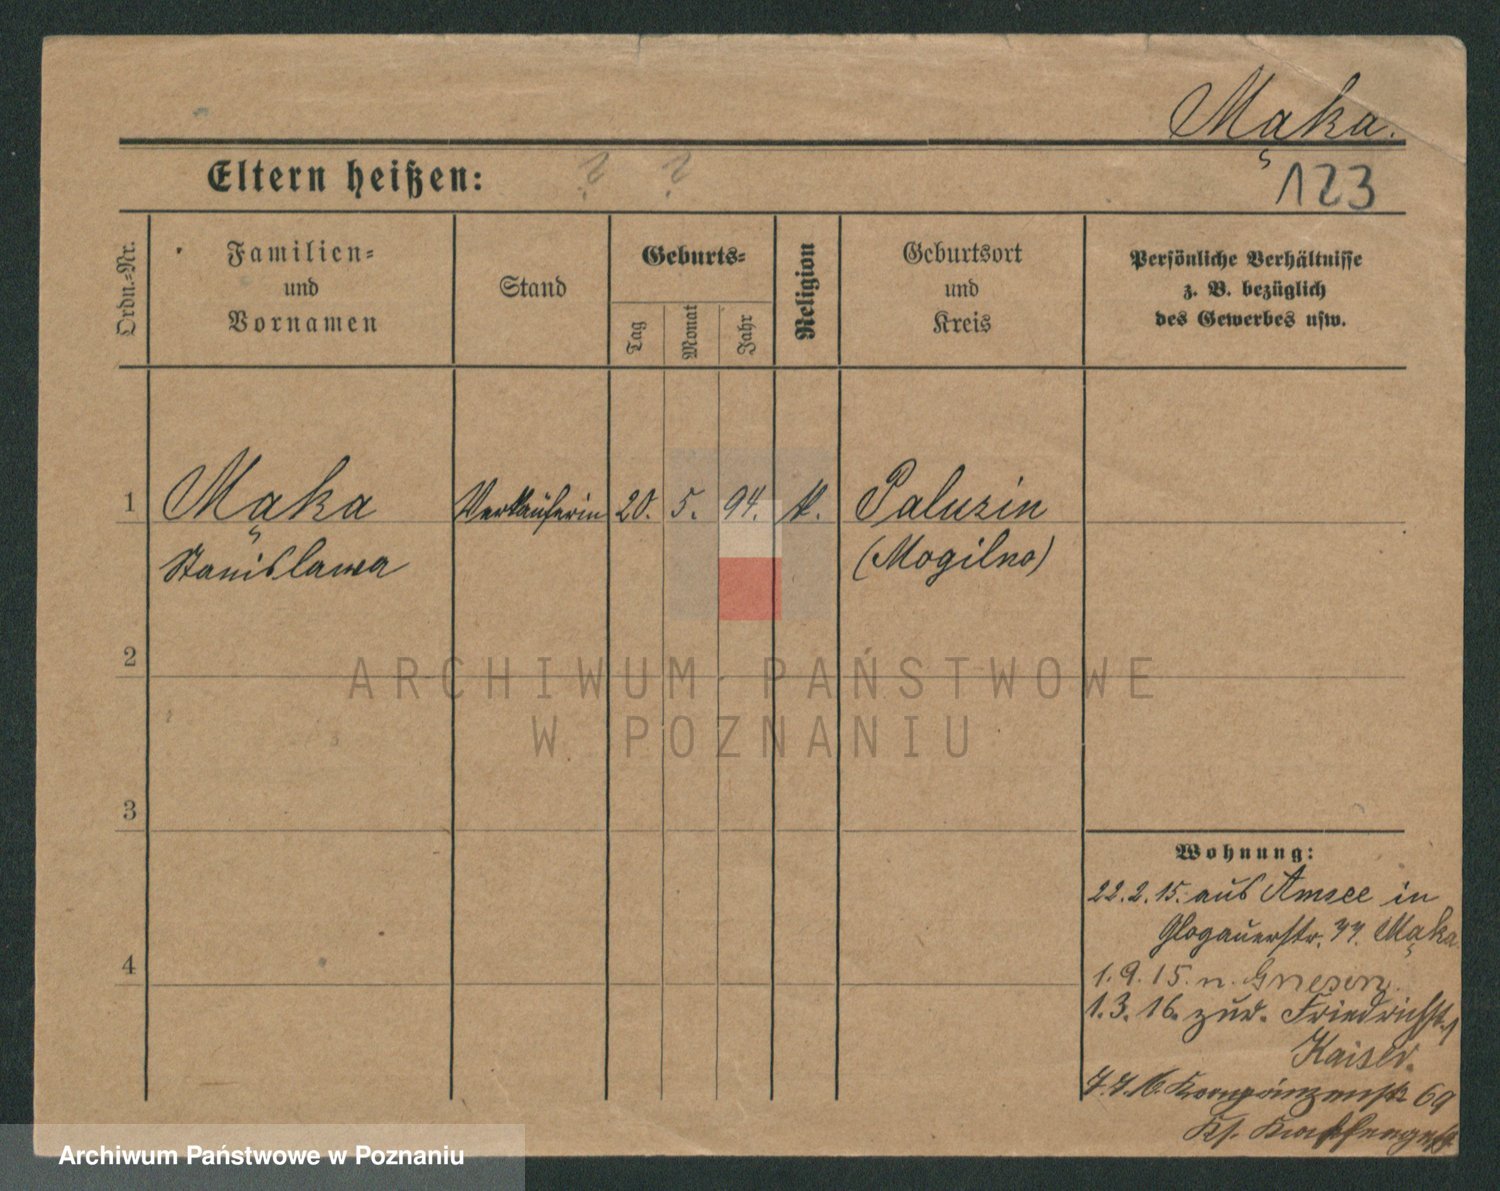 Mąka.
Eltern heißen: ? ?
123
Ordn.-Nr.
Familien-
und
Vornamen
Stand
Geburts-
Tag
Monat
Jahr
Religion
Geburtsort
und
Kreis
Persönliche Verhältnisse
z. B. bezüglich
des Gewerbes usw.
1 Mąka Verkäuferin 20. 5. 94. k. Paluzin
Stanislawa (Mogilno)
2
3
4
Wohnung:
22. 2. 15. aus Amsee in
Glogauerstr. 77. Mąka.
1. 9. 15. n. Gnesen.
1. 3. 16. zur. Friedrichstr. 1
Kaiser.
7. 7. 16. 69
ARCHIWUM PAŃSTWOWE
W POZNANIU
Archiwum Państwowe w Poznaniu